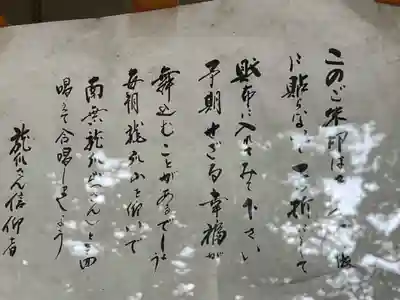 このご朱印は
に貼らないで二つ折りにして
財布に入れてみて下さい
予期せざる幸福が
舞込むことがあるでしょう
毎朝龍孔山を仰いで
南無龍孔ぜんと三回
唱えて合唱しましょう
龍孔さん信仰者